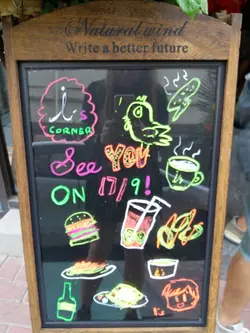 Natural wind
Write a better future
L's
CORNER
See YOU
ON 17/9!